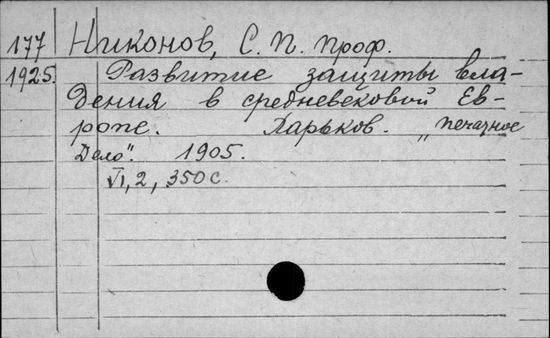 177 Никонов, С. П. проф.
1925. Развитие защиты вла-
дения в средневековой Ев-
ропе. Харьков. „Печатное
Дело". 1905.
VI, 2, 350 с.